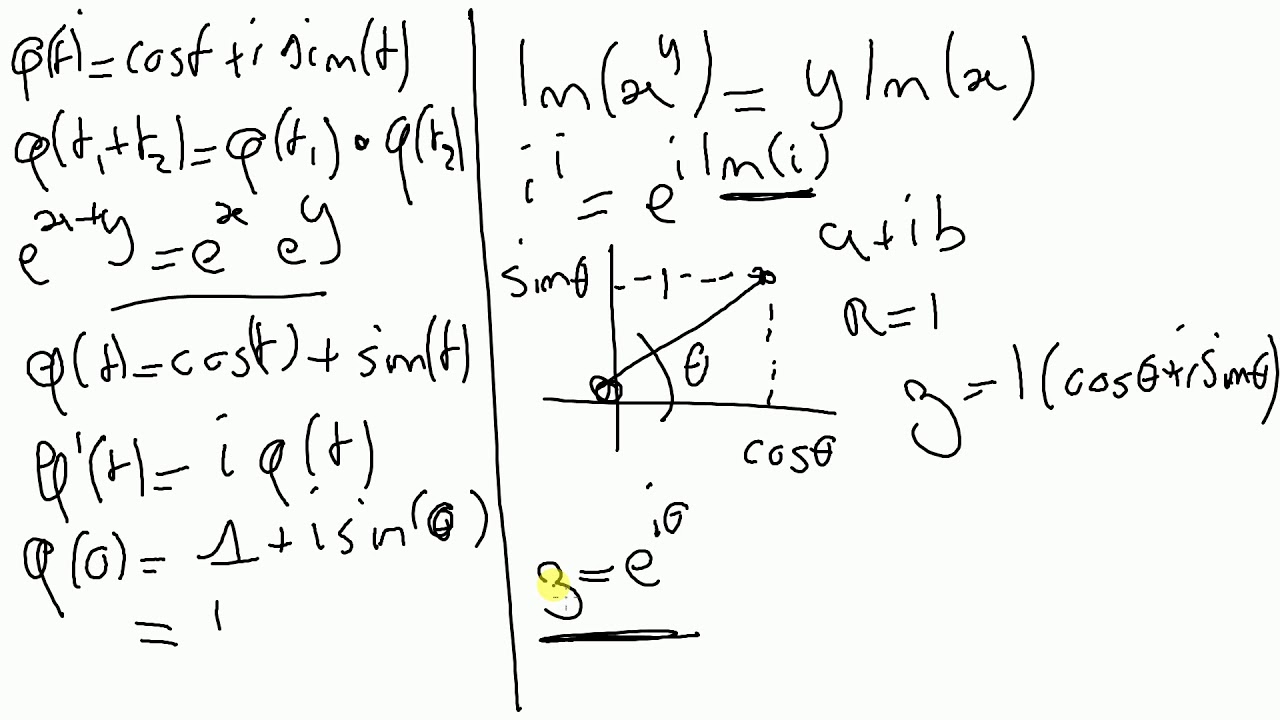 φ(t) = cost + i sin(t)
φ(t₁+t₂) = φ(t₁) • φ(t₂)
e^{x+y} = e^x e^y
φ(t) = cos(t) + sin(t)
φ'(t) = i φ(t)
φ(0) = 1 + i sin(0)
= 1
ln(x^y) = y ln(x)
i^i = e^{i ln(i)}
a + i b
sinθ
R = 1
θ
z = 1 (cosθ + i sinθ)
cosθ
z = e^{iθ}